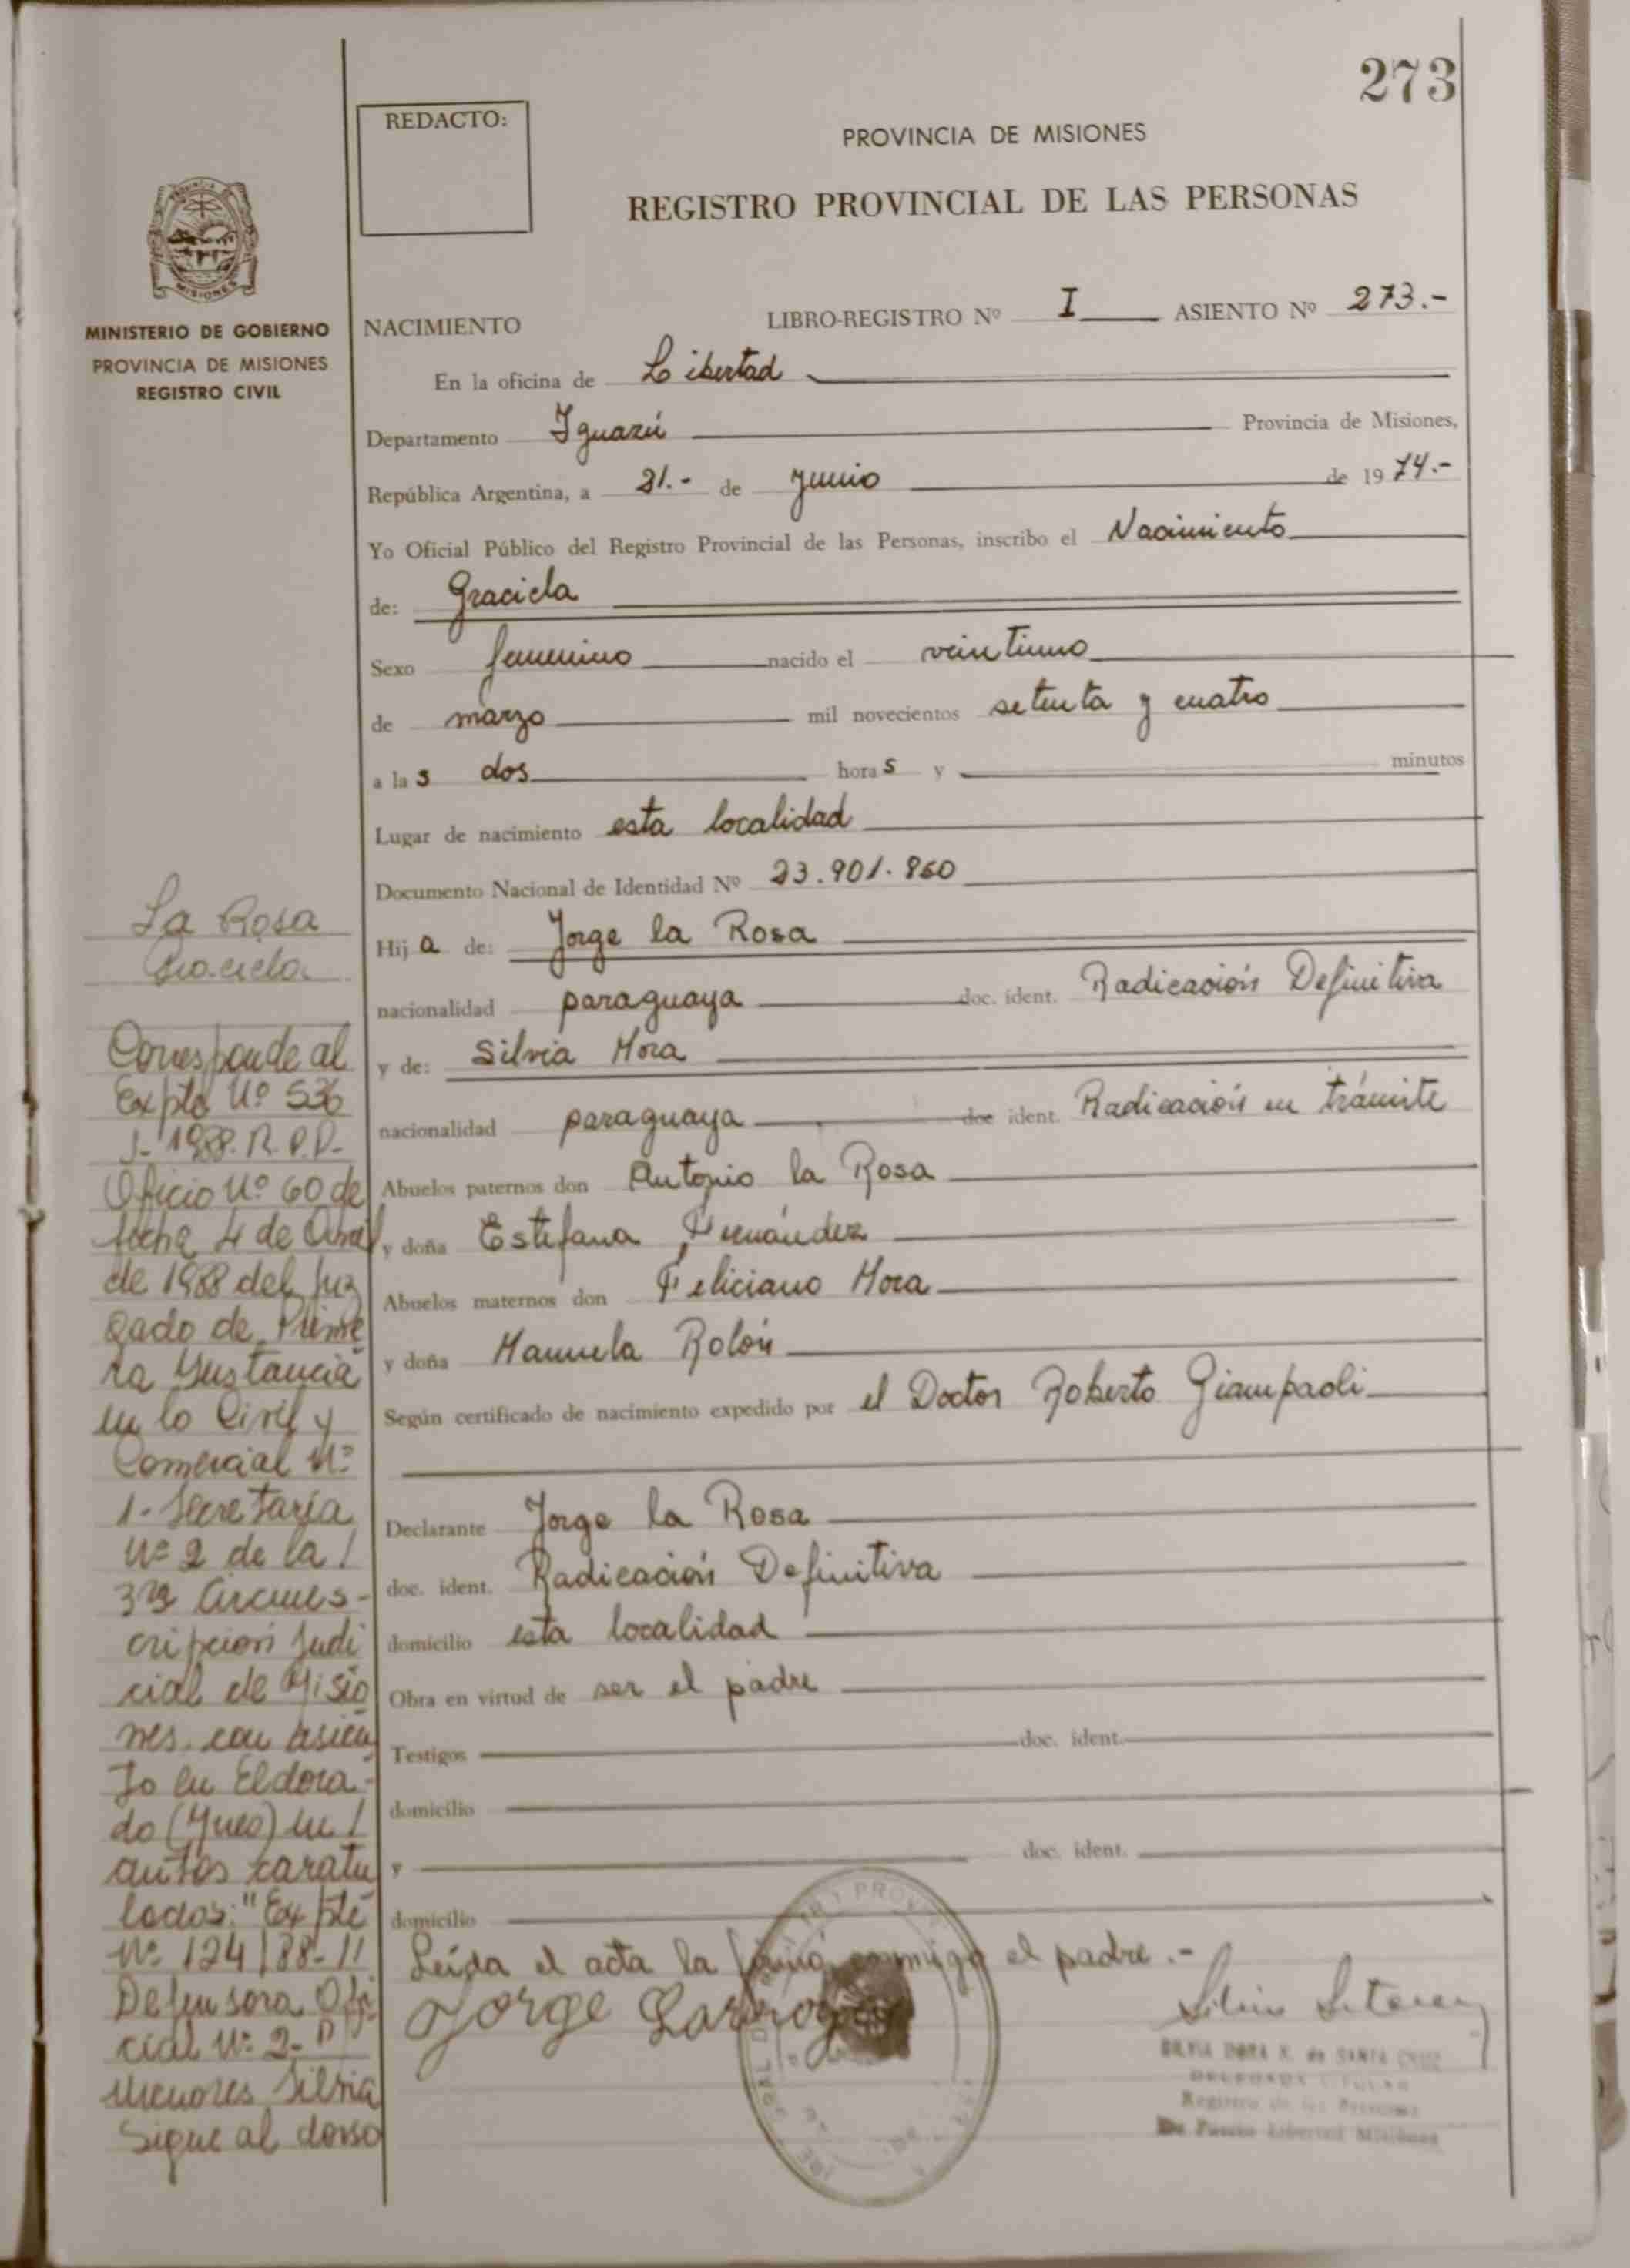 273
REDACTO:
PROVINCIA DE MISIONES
REGISTRO PROVINCIAL DE LAS PERSONAS
MISIONES
MINISTERIO DE GOBIERNO
PROVINCIA DE MISIONES
REGISTRO CIVIL
NACIMIENTO LIBRO-REGISTRO Nº I ASIENTO Nº 273.-
En la oficina de Libertad
Departamento Iguazú Provincia de Misiones,
República Argentina, a 21.- de junio de 1974.-
Yo Oficial Público del Registro Provincial de las Personas, inscribo el Nacimiento
de: Graciela
Sexo femenino nacido el veintiuno
de marzo mil novecientos setenta y cuatro
a las dos horas y minutos
Lugar de nacimiento esta localidad
Documento Nacional de Identidad Nº 23.901.860
Hija de: Jorge la Rosa
nacionalidad paraguaya doc. ident. Radicación Definitiva
y de: Silvia Mora
nacionalidad paraguaya doc ident. Radicación en trámite
Abuelos paternos don Antonio la Rosa
y doña Estefana Fernández
Abuelos maternos don Feliciano Mora
y doña Manuela Rolón
Según certificado de nacimiento expedido por el Doctor Roberto Giampaoli
Declarante Jorge la Rosa
doc. ident. Radicación Definitiva
domicilio esta localidad
Obra en virtud de ser el padre
Testigos doc. ident.
domicilio
y doc. ident.
domicilio
Leída el acta la firmó conmigo el padre.-
Jorge
SILVIA DORA de SANTA CRUZ
Registro de las Personas
De Puerto Libertad Misiones
La Rosa
Graciela
Corresponde al
Expte Nº 536
J- 1988. R.P.P.-
Oficio Nº 60 de
fecha 4 de Abril
de 1988 del Juz
gado de Prime
ra Instancia
en lo Civil y
Comercial Nº
1- Secretaría
Nº 2 de la /
3ra Circuns-
cripcion Judi
cial de Misio
nes con asien
to en Eldora-
do (Mnes) en /
autos caratu
lados: "Expte
Nº 124/88-11
Defensora Ofi
cial Nº 2-
Menores Silvia
Sigue al dorso